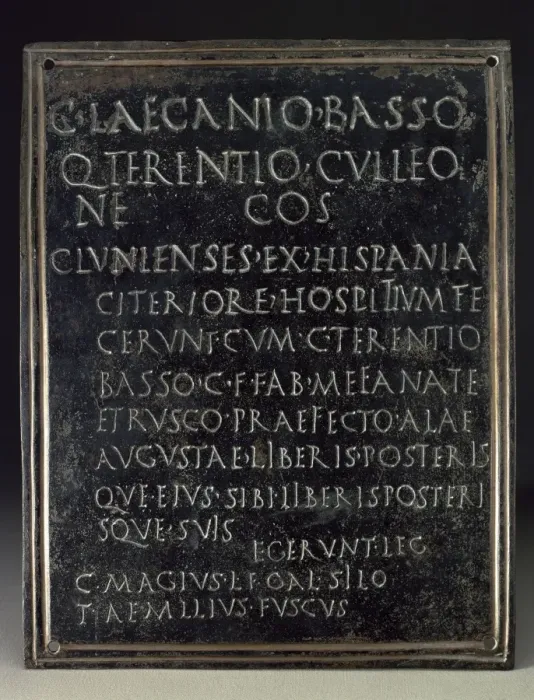 C·LAECANIO·BASSO
Q TERENTIO·CVLLEO
NE COS
CLVNIENSES·EX·HISPANIA
CITERIORE·HOSPITIVM FE
CERVNT·CVM·C TERENTIO
BASSO·C·F FAB·MEFANATE
ETRVSCO·PRAEFECTO·ALAE
AVGVSTAE·LIBERIS·POSTERIS
QVE·EIVS·SIBI·LIBERIS POSTERI
SQVE·SVIS
EGERVNT·LEG
C·MAGIVS·L·F GAL·SILO
T·AEMILIVS·FVSCVS